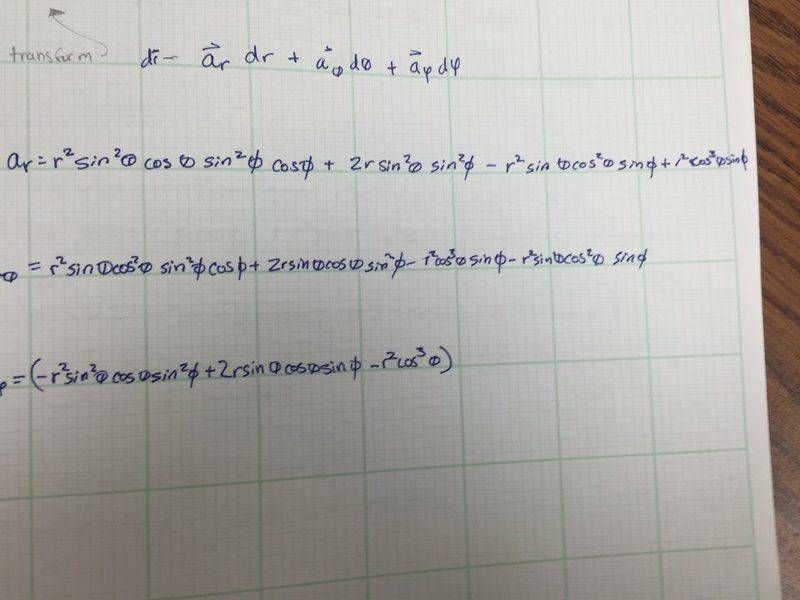 transform
dr̄ - a⃗r dr + a⃗θ dθ + a⃗φ dφ
ar = r² sin²θ cos θ sin²φ cos φ + 2r sin²θ sin²φ - r² sin θ cos²θ sin φ + r² cos³θ sin φ
θ = r² sin θ cos²θ sin²φ cos φ + 2r sin θ cos θ sin²φ - r² cos³θ sin φ - r² sin θ cos²θ sin φ
φ = (-r² sin²θ cos θ sin²φ + 2r sin θ cos θ sin φ - r² cos³θ)